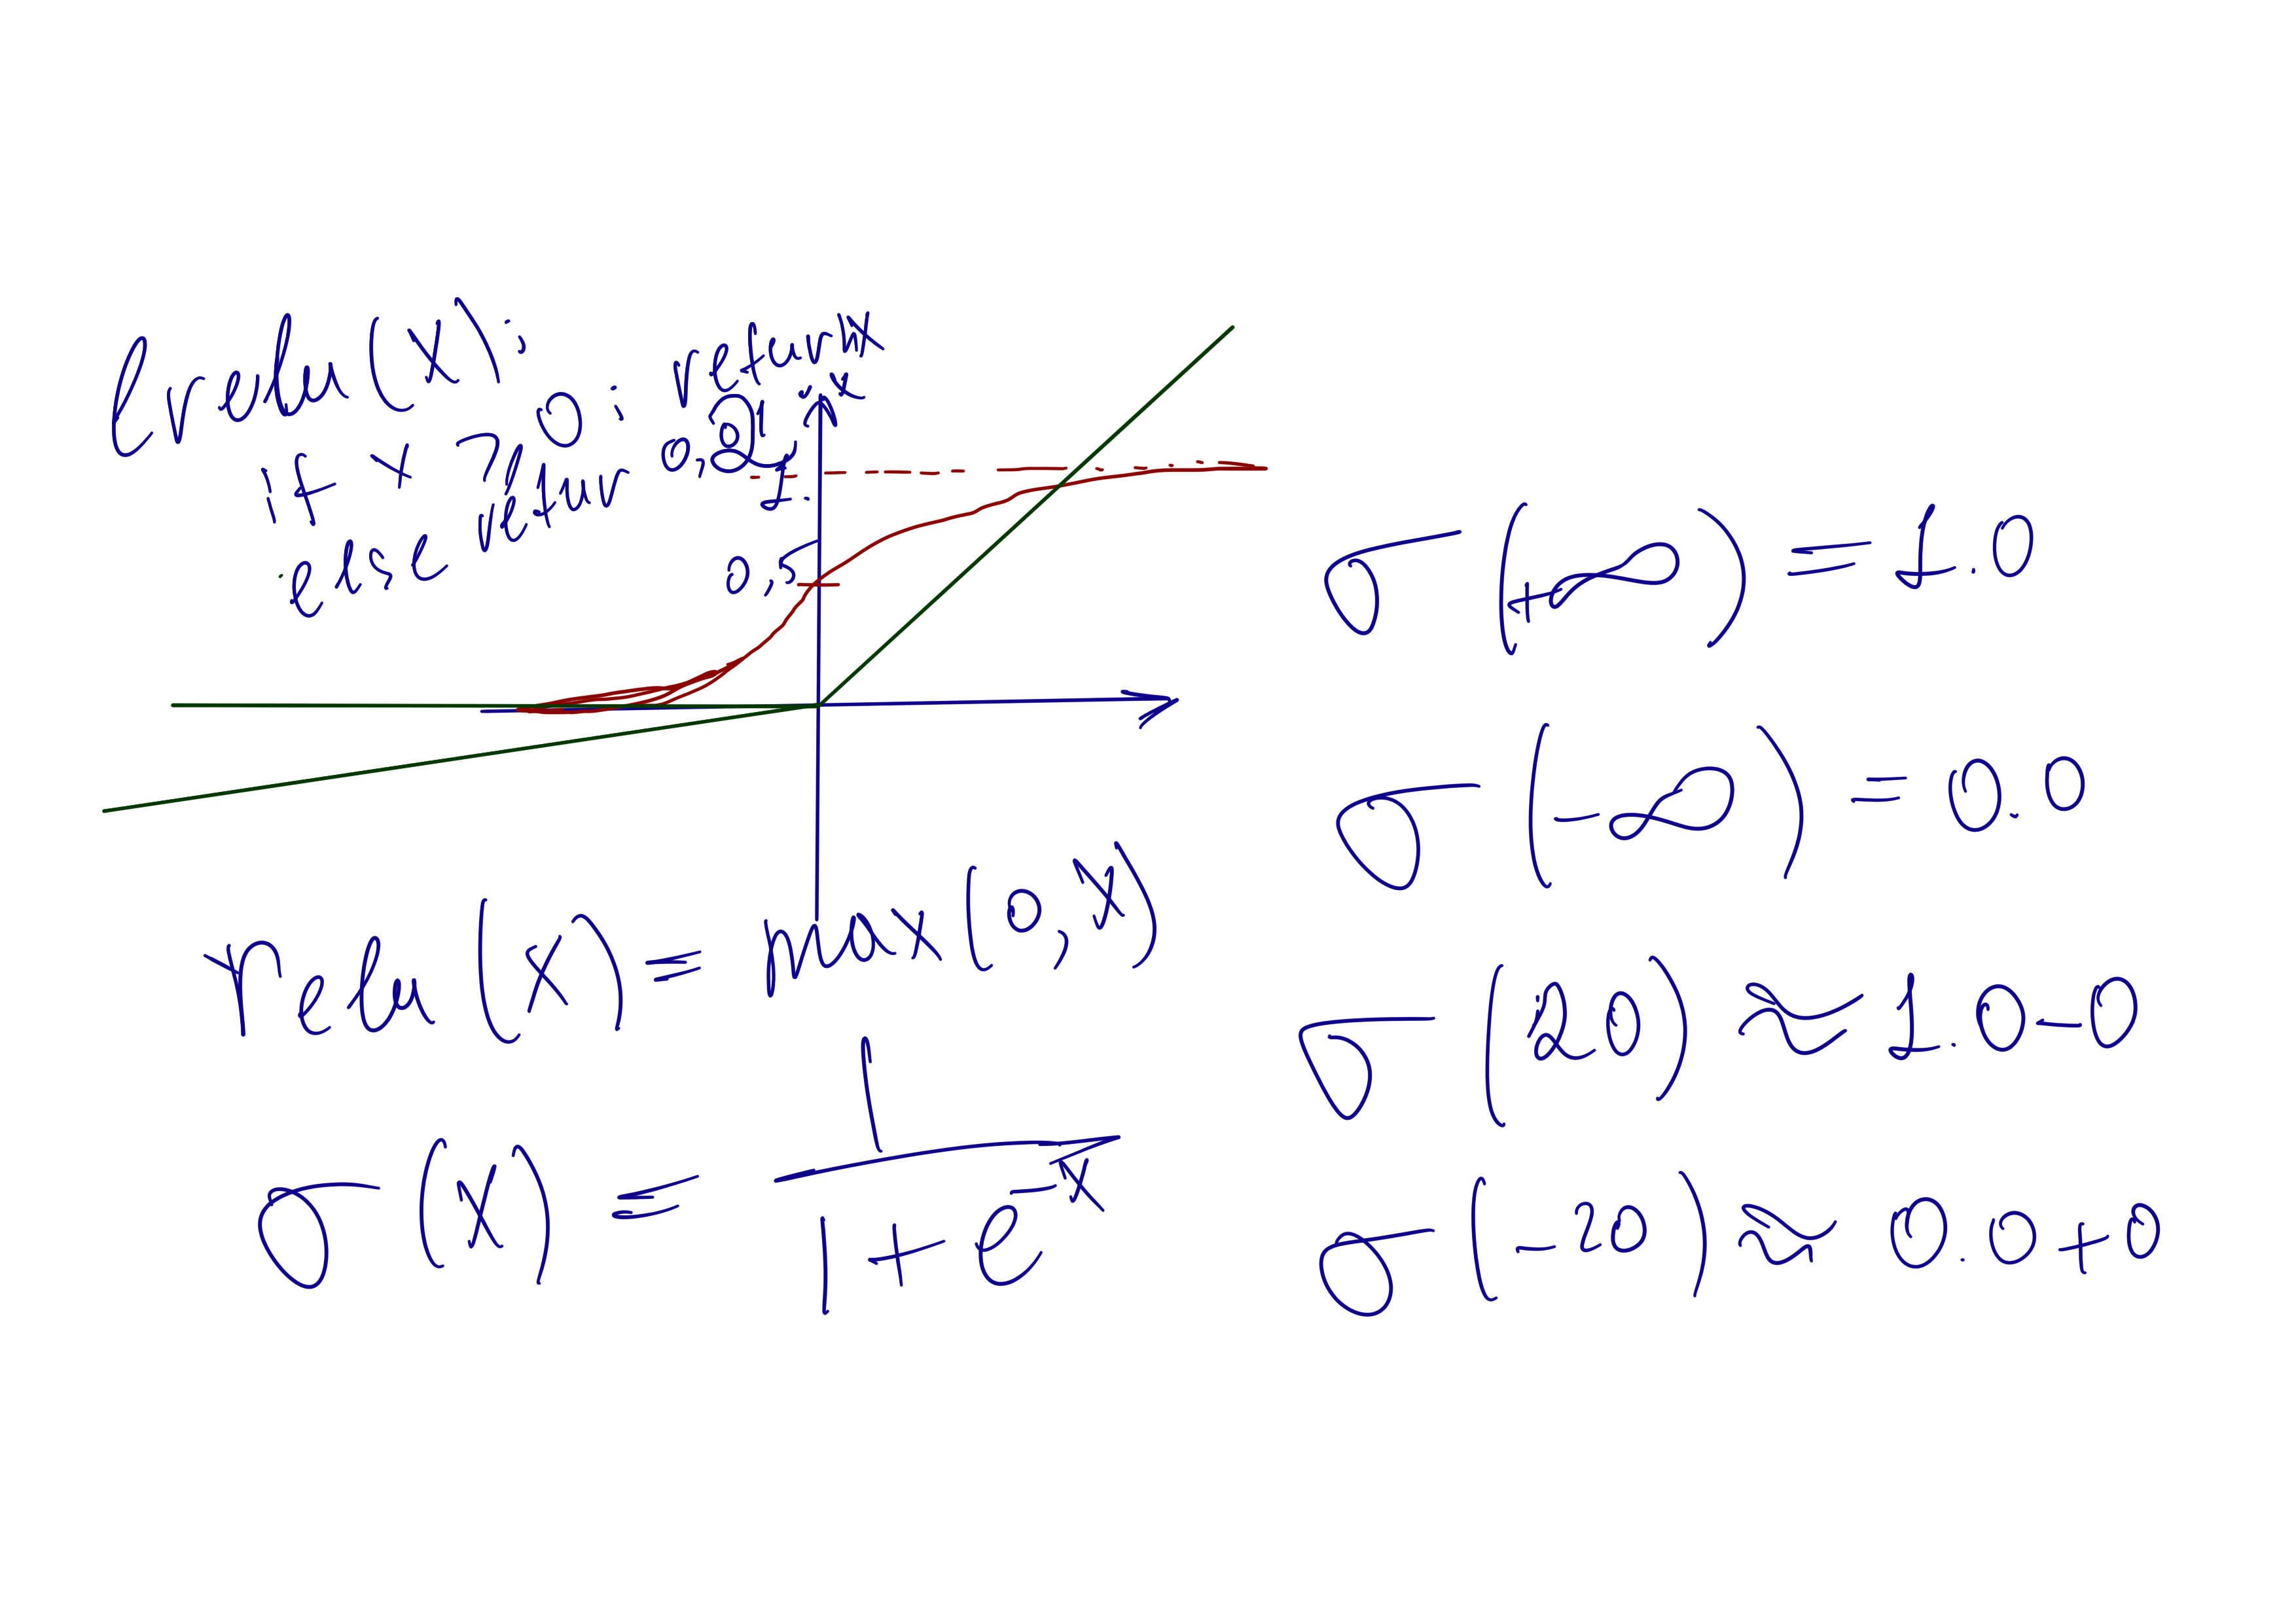 lrelu(x):
if x ≥ 0: return x
else return 0,01·x
1.
0,5
relu(x) = max(0, x)
σ(x) = 1 / (1 + e^-x)
σ(+∞) = 1.0
σ(-∞) = 0.0
σ(20) ≈ 1.0-0
σ(-20) ≈ 0.0+0